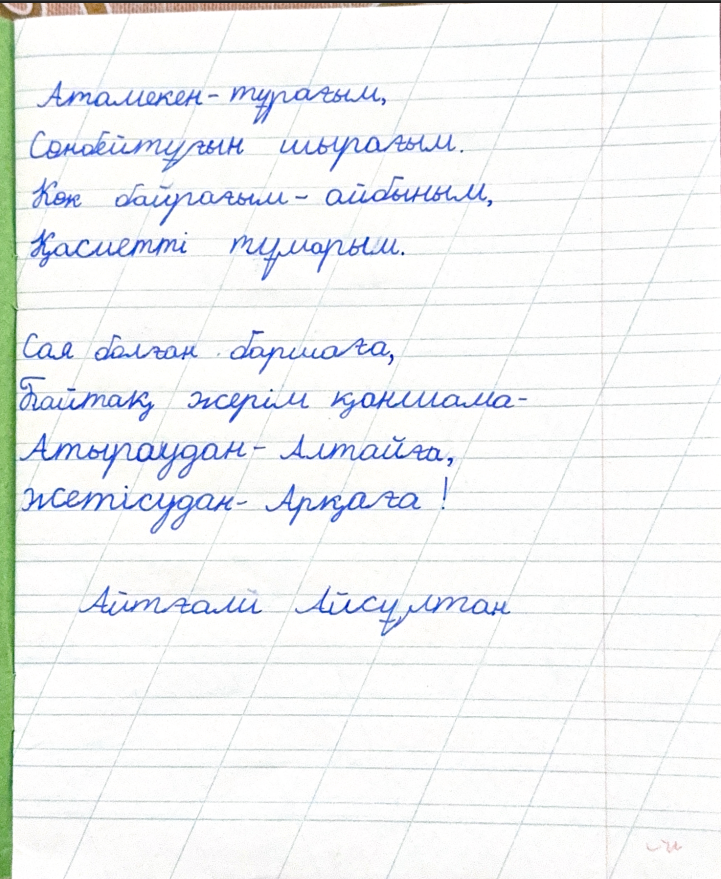 Атамекен- тұрағым,
Сөнбейтұғын шырағым.
Көк байрағым- айбыным,
Қасиетті тұмарым.
Сая болған баршаға,
Байтақ жерім қаншама-
Атыраудан- Алтайға,
Жетісудан- Арқаға!
Айтғали Айсұлтан